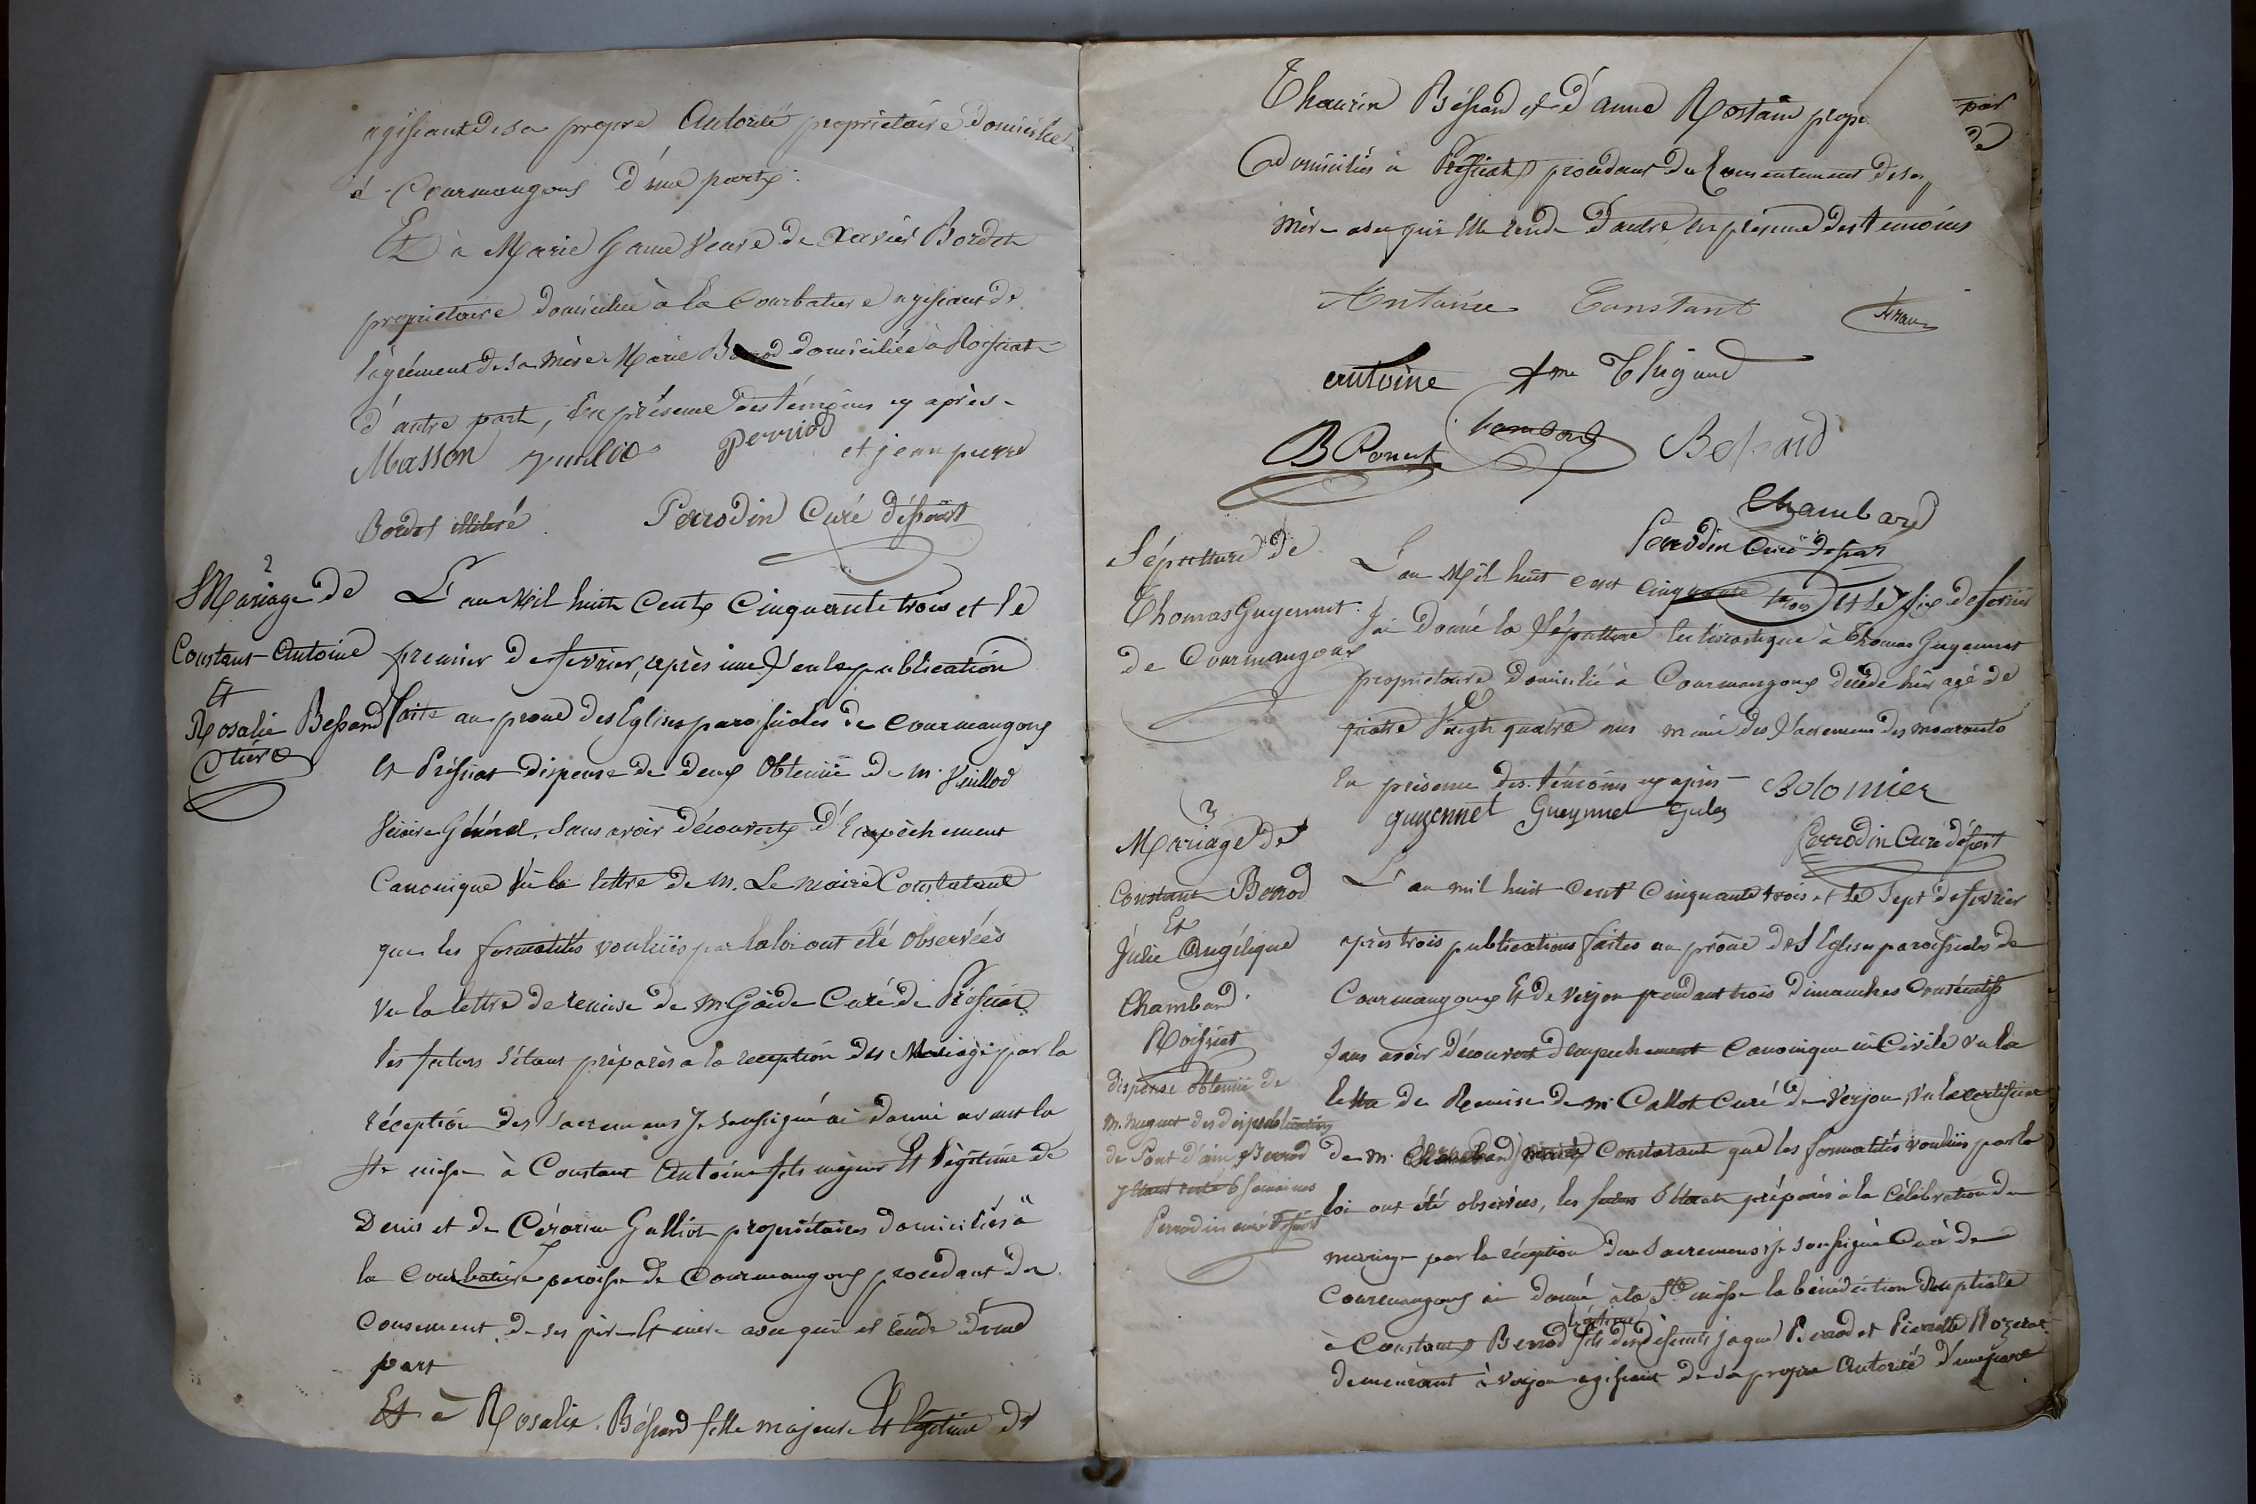 agissant de sa propre autorité propriétaire domicilié
à Courmangoux d'une part
Et à Marie Game veuve de Xavier Bordet
propriétaire domiciliée à la Courbatiere agissant de
l'agrément de sa mère Marie domiciliée à Roissiat
d'autre part, En présence des témoins cy après
Masson perriod et jean pierre
Bordet illitéré Perrodin Curé déposit
2
Mariage de
Constant Antoine
Et
Rosalie Bessand
L'an Mil huit Cents Cinquante trois et le
premier de fevrier, après une seule publication
faite au prone des Eglises paroissiales de Courmangoux
Et Préssiat dispense de deux obtenüe de m. Vuillod
Vicaire Général, Sans avoir découverts d'Empèchement
Canonique Vu la lettre de M. Le maire Constatant
que les formalités voulües par la loi ont été observées
Vu la lettre de remise de m. Curé de Préssiat
les futurs s'étant préparés a la reception des Mariage par la
réception des Sacremens Je soussigné ai donné avant la
Ste messe à Constant Antoine fils majeur Et légitime de
Denis et de Césarine Galliot propriétaires domiciliés à
la Courbatiere paroisse de Courmangoux procedant du
Consement de ses père Et mère a ce qu'il d'une
part
Et à Rosalie Béssand fille majeure Et légitime de
Thaurin Béssand et d'anne Rostain
par
de
domiciliés à Préssiat procedant du Consentement de sa
mère d'autre en présence des témoins
Antoine Constant
antoine Thigaud
Bessand
Chambard
Perrodin Curé
Sépulture de
Thomas Guyennet
de Courmangoux
L'an Mil huit cent cinquante trois Et le six de fevrier
J'ai Donné la Sépulture Ecclésiastique à Thomas Guyennet
propriétaire domicilié à Courmangoux décédé hier agé de
quatre Vingt quatre ans muni des Sacremens des mourants
En présence des témoins cy après Bolomier
guyennet Gueynnet Jules
Perrodin Curé
2
Mariage de
Constant Berrod
Et
Julie Angélique
Chambard
Roissiat
dispense obtenüe de
de Pont d'ain Berrod
6 semaines
Perrodin curé
L'an mil huit cent Cinquante trois et le Sept de fevrier
après trois publications faites au prône des Eglises paroissiales de
Courmangoux Et de Verjon pendant trois dimanches Consécutifs
Sans avoir découvert d'empechement Canonique ni Civile Vu la
lettre de Remise de mr Callot Curé de Verjon, Vu le certificat
de m. Constatant que les formalités voulües par la
loi ont été observées, les futurs préparés à la Célébration du
mariage par la réception des Sacremens je soussigné Curé de
Courmangoux ai donné à la Ste messe la bénédiction Nuptiale
légitime
à Constant Berrod fils des défunts jaque Berrod et Pierrette
demeurant à Verjon agissant de sa propre autorité d'une part